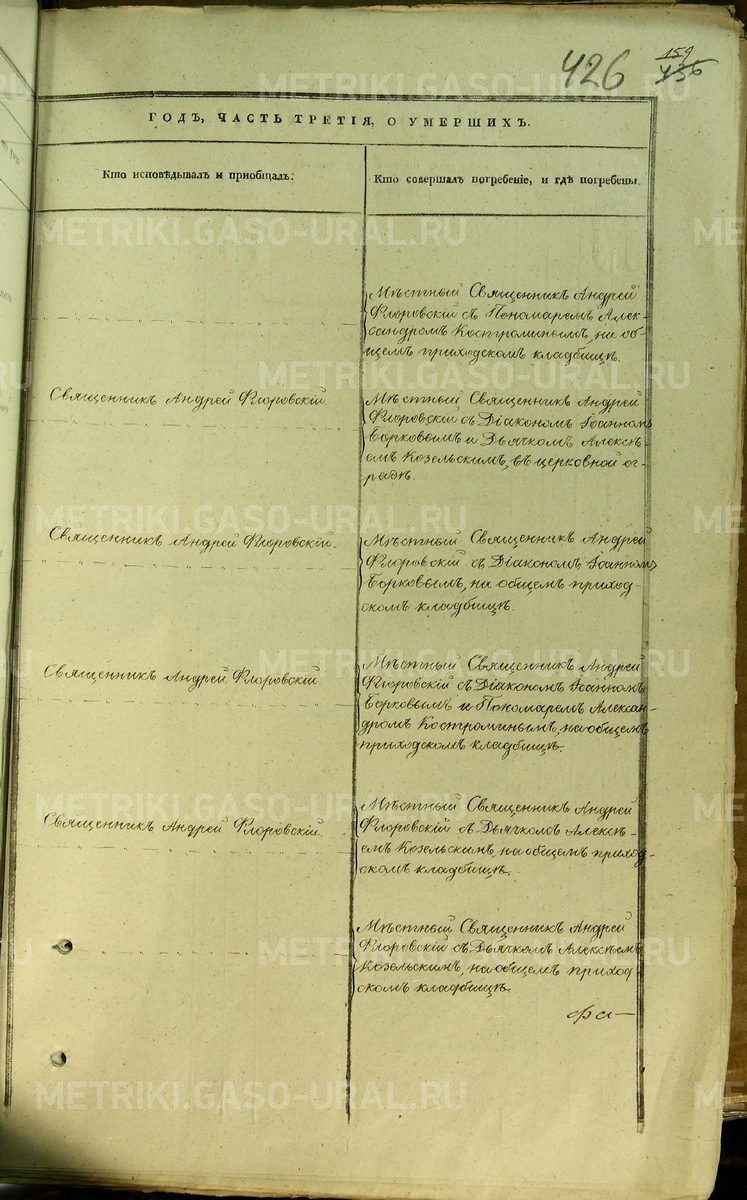 426
159
436
ГОДЪ, ЧАСТЬ ТРЕТІЯ, О УМЕРШИХЪ.
Кто исповѣдывалъ и приобщалъ.
Кто совершалъ погребеніе, и гдѣ погребены.
Мѣстный Священникъ Андрей
Флоровскій съ Пономаремъ Алек-
сандромъ Костроминымъ, на об-
щемъ приходскомъ кладбищѣ.
Священникъ Андрей Флоровскій.
Мѣстный Священникъ Андрей
Флоровскій съ Діакономъ Іоанномъ
Борковымъ и Дьячкомъ Алексѣ-
емъ Козельскимъ, въ церковной ог-
радѣ.
Священникъ Андрей Флоровскій.
Мѣстный Священникъ Андрей
Флоровскій съ Діакономъ Іоанномъ
Борковымъ, на общемъ приход-
скомъ кладбищѣ.
Священникъ Андрей Флоровскій.
Мѣстный Священникъ Андрей
Флоровскій съ Діакономъ Іоанномъ
Борковымъ и Пономаремъ Алексан-
дромъ Костроминымъ, на общемъ
приходскомъ кладбищѣ.
Священникъ Андрей Флоровскій.
Мѣстный Священникъ Андрей
Флоровскій съ Дьячкомъ Алексѣ-
емъ Козельскимъ, на общемъ приход-
скомъ кладбищѣ.
Мѣстный Священникъ Андрей
Флоровскій съ Дьячкомъ Алексѣемъ
Козельскимъ, на общемъ приход-
скомъ кладбищѣ.
METRIKI.GASO-URAL.RU